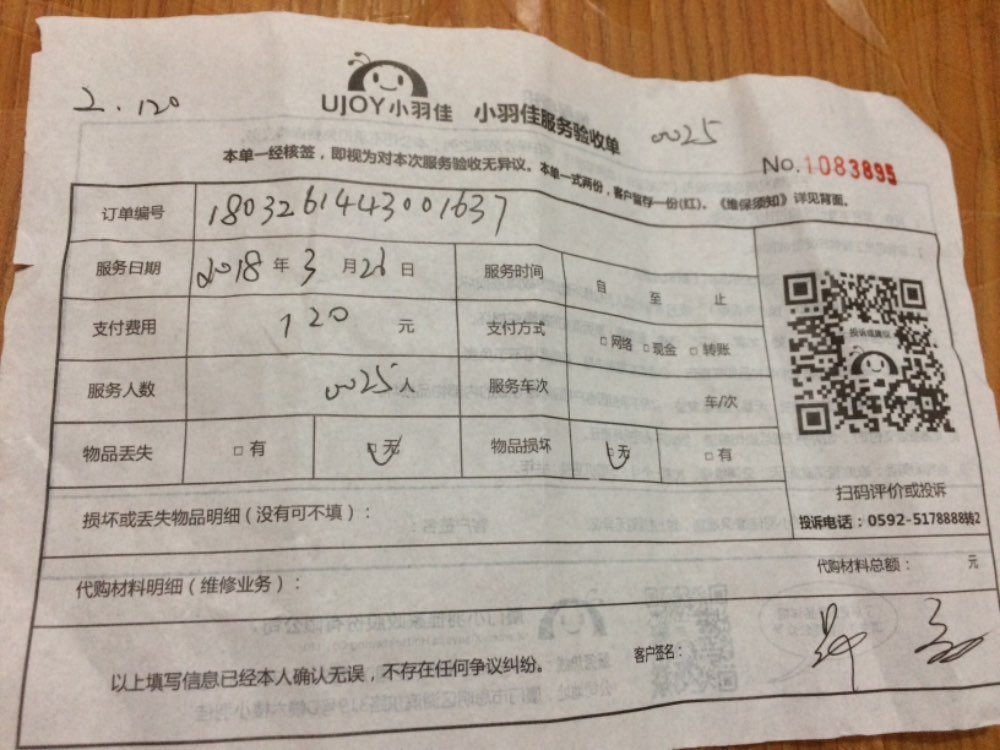 2.120
UJOY小羽佳 小羽佳服务验收单 0025
本单一经核签，即视为对本次服务验收无异议。本单一式两份，客户留存一份(红)。《维保须知》详见背面。
No.1083895
订单编号 1803261443001637
服务日期 2018年3月26日 服务时间 自 至 止
支付费用 120 元 支付方式 □网络 □现金 □转账
服务人数 0025人 服务车次 车/次
物品丢失 □有 □无 物品损坏 □无 □有
投诉或建议
扫码评价或投诉
投诉电话：0592-5178888转2
损坏或丢失物品明细（没有可不填）：
代购材料明细（维修业务）： 代购材料总额： 元
以上填写信息已经本人确认无误，不存在任何争议纠纷。 客户签名：